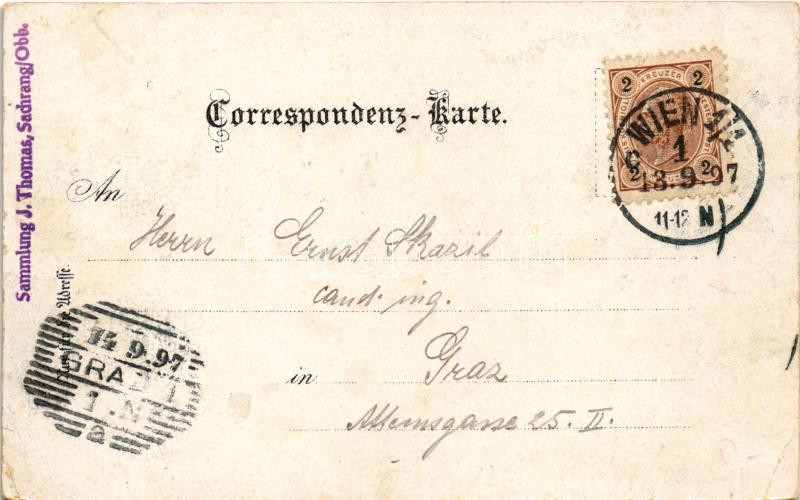 Sammlung J. Thomas, Sachrang/Obb.
Correspondenz-Karte.
2 KREUZER 2
2 2
WIEN 1/1
1
13.9.97
11-12 N
C
An
Herrn Ernst Skazil
cand. ing.
in Graz
Attemsgasse 25. II.
Adresse.
14 9.97
GRAZ 1
1.N
a